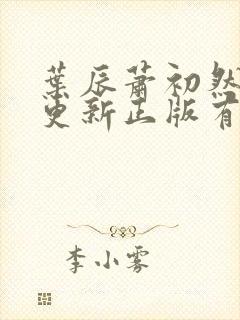 葉辰蕭初然
更新正版有
李小雾